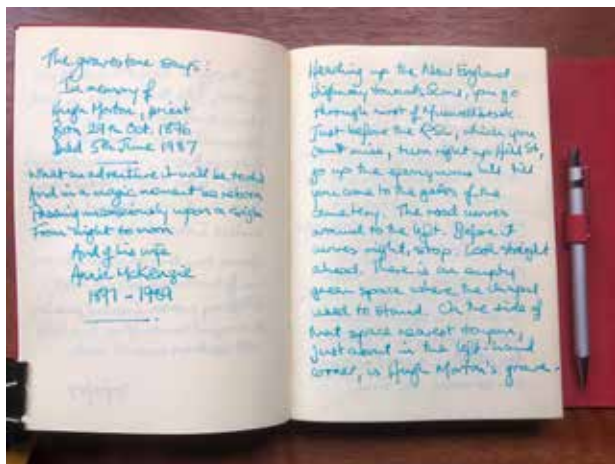 The gravestone says:
In memory of
Hugh Morton, priest
Born 29th Oct. 1896
Died 5th June 1987
What an adventure it will be to die
And in a magic moment be reborn
Passing unconsciously upon a
From night to morn
And of his wife
Annie McKenzie
1897 – 1989
Heading up the New England
Highway towards Scone, you go
through most of Muswellbrook.
Just before the RSL, which you
can't miss, turn right up Hill St,
go up the eponymous hill till
you come to the gates of the
cemetery. The road curves
around to the left. Before it
curves right, stop. Look straight
ahead. There is an empty
green space where the chapel
used to stand. On the side of
that space nearest to you,
just about in the left hand
corner, is Hugh Morton's grave.